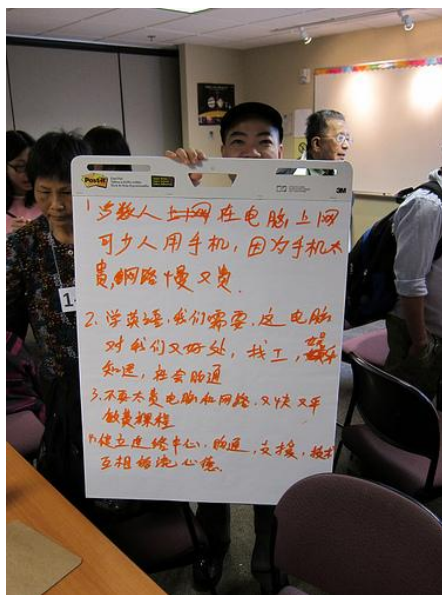 Post-it
3M
1 多数人上网在电脑上网
可少人用手机，因为手机太
貴，網路慢又貴.
2. 学英语，我们需要，这电脑
对我们又好处，找工，娱乐
知道，社会沟通
3. 不要太贵电脑和网路，又快又平
做费課程
4. 建立进修中心，沟通，支援，技术
互相交流心德.
1